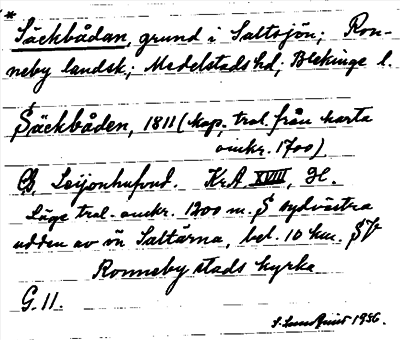 *
Säckbådan, grund i Saltsjön; Ron-
neby landsk; Medelstads hd; Blekinge l.
Säckbåden, 1811 (kop, trol. från karta
omkr. 1700)
CB, Leijonhufvud. KrA XVIII, H.
Läge trol. omkr. 1200 m. S sydvästra
udden av ön Saltärna, bel. 10 km. SV
Ronneby stads kyrka
G. 11.
S. Lundquist 1956.